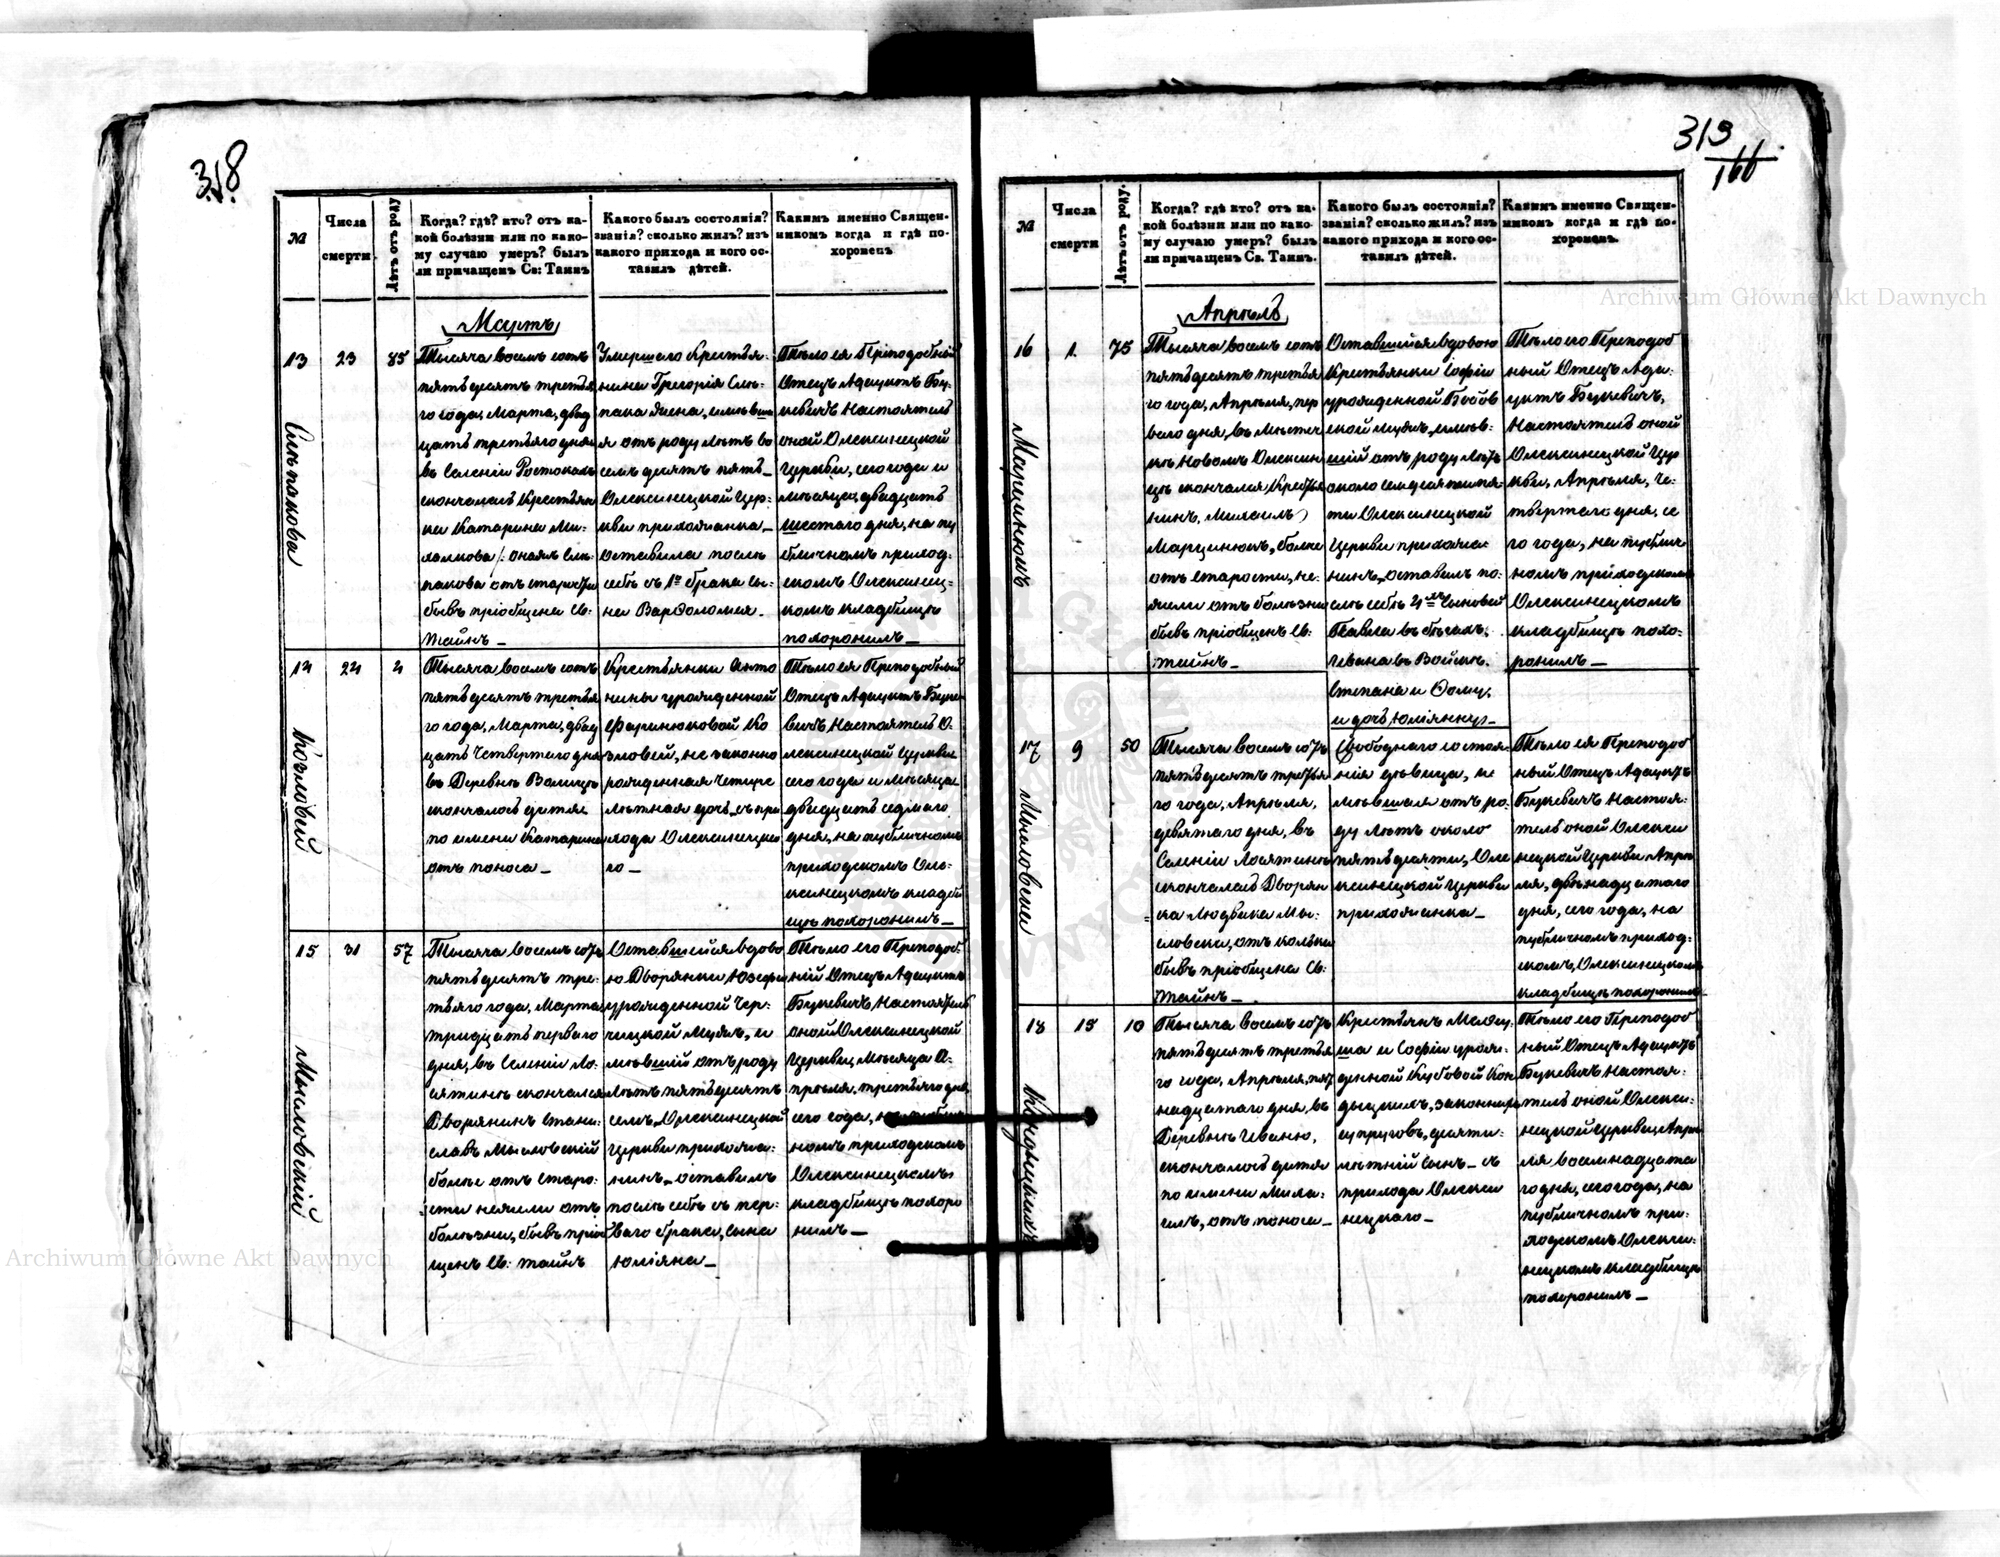 318
№
Числа
смерти
Лѣтъ отъ роду
Когда? гдѣ? кто? отъ ка-
кой болѣзни или по како-
му случаю умеръ? былъ
ли причащенъ Св: Таинъ
Какого былъ состоянія?
званія? сколько жилъ? изъ
какого прихода и кого ос-
тавилъ дѣтей.
Какимъ именно Священ-
никомъ когда и гдѣ по-
хороненъ
Мартъ
13
23
85
Слѣпакова
Тысяча восемь сотъ
пятьдесятъ третья
го года, Марта, двад
цать третьяго дня
въ Селеніи Ростокахъ
скончалась Крестьян
ка Катарина Ми-
халкова /: онаяж Слѣ-
пакова отъ старости
бывъ пріобщена Св:
Тайнъ —
Умершаго Крестья-
нина Григорія Слѣ-
пака жена, имѣвша
я отъ роду лѣтъ во
семьдесятъ пять —
Олексинецкой Цер-
кви прихожанка —
оставила послѣ
себѣ съ 1го брака сы-
на Варфоломея.
Тѣло ея Преподобный
Отецъ Адацитъ Бу-
кевичъ Настоятель
оной Олексинецкой
Церкви, сего года и
мѣсяца, двадцать
шестаго дня, на пу
бличномъ приход-
скомъ Олексинец-
комъ кладбищѣ
похоронилъ —
14
24
4
Козловей
Тысяча восемь сотъ
пятьдесятъ третья
го года, Марта, двад
цать четвертаго дня
въ Деревнѣ Волицѣ
скончалось дитя
по имени Катарина
отъ поноса —
Крестьянки Анто
нины урожденной
Фаринюковой Ко
зловей, не законно
рожденная четырё
лѣтная дочь, съ при
хода Олексинецка
го —
Тѣло ея Преподобный
Отецъ Адацитъ Буке
вичъ Настоятель О
лексинецкой Церкви
сего года и мѣсяца
двадцать седмаго
дня, на публичномъ
приходскомъ Оле-
ксинецкомъ кладби
щѣ похоронилъ —
15
31
57
Мысловскій
Тысяча восемь сотъ
пятьдесятъ тре-
тьяго года, Марта
тридцать перваго
дня, въ Селеніи Ло-
зятинѣ скончался
Дворянинъ Стани-
славъ Мысловскій
болѣе отъ старо-
сти нежели отъ
болѣзни, бывъ пріоб
щенъ Св: тайнъ
Оставшейся вдово
ю Дворянки Юзефы
урожденной Чер-
ницкой мужъ, и
мѣвшій отъ роду
лѣтъ пятьдесятъ
семь, Олексинецкой
Церкви прихожа-
нинъ, оставилъ
послѣ себѣ съ пер-
ваго брака, сына
Юліяна —
Тѣло его Преподоб-
ній Отецъ Адацитъ
Букевичъ Настоятель
оной Олексинецкой
Церкви, Мѣсяца А-
прѣля, третьяго дня,
сего года, на публич
номъ приходскомъ
Олексинецкомъ
кладбищѣ похоро
нилъ —
319
166
№
Числа
смерти
Лѣтъ отъ роду.
Когда? гдѣ кто? отъ ка-
кой болѣзни или по како-
му случаю умеръ? былъ
ли причащенъ Св. Таинъ.
Какого былъ состоянія?
званія? сколько жилъ? изъ
какого прихода и кого ос-
тавилъ дѣтей.
Какимъ именно Священ-
никомъ когда и гдѣ по-
хороненъ.
Апрѣль
16
1.
75
Марцинюкъ
Тысяча восемь сотъ
пятьдесятъ третья
го года, Апрѣля, пер
ваго дня, въ мѣстеч
кѣ Новомъ Олексин
цѣ скончался Крестья
нинъ, Михаилъ
Марцинюкъ, болѣе
отъ старости, не-
жели отъ болѣзни
бывъ пріобщенъ Св:
тайнъ —
Оставшейся вдовою
Крестьянки Софіи
урожденной Бобов
ской мужъ, имѣв-
шій отъ роду лѣтъ
около семдесятипя-
ти Олексинецкой
Церкви прихожа-
нинъ, оставилъ по-
слѣ себѣ 4хъ сыновей
Павла въ бѣгахъ,
Ивана въ Войскѣ,
Степана и Фому,
и дочь Юліянну —
Тѣло его Преподоб
ный Отецъ Ада-
цитъ Букевичъ,
Настоятель оной
Олексинецкой Цер
кви, Апрѣля, че-
твертаго дня, се
го года, на публич
номъ приходскомъ
Олексинецкомъ
кладбищѣ похо-
ронилъ —
17
9
50
Мысловска
Тысяча восемь сотъ
пятьдесятъ третья
го года, Апрѣля,
девятаго дня, въ
Селеніи Лозятинѣ
скончалась Дворян
ка Людвика Мы-
словска, отъ кольки
бывъ пріобщена Св:
Тайнъ —
Свободнаго состоя-
нія дѣвица, и
мѣвшая отъ ро-
ду лѣтъ около
пятьдесяти, Оле
ксинецкой Церкви
прихожанка —
Тѣло ея Преподоб
ный Отецъ Адацитъ
Букевичъ Настоя-
тель оной Олекси
нецкой Церкви Апрѣ
ля, двѣнадцатаго
дня, сего года, на
публичномъ приход-
скомъ, Олексинецкомъ
кладбищѣ похоронилъ
18
15
10
Кондыцкихъ
Тысяча восемь сотъ
пятьдесятъ третья
го года, Апрѣля, пят
надцатаго дня, въ
Деревнѣ Иваню,
скончалось дитя
по имени Миха-
илъ, отъ поноса —
Крестьянъ Матѳу
ша и Софіи урож-
денной Кубовой Кон
дыцкихъ, законныхъ
супруговъ, десяти-
лѣтній сынъ — съ
прихода Олекси
нецкаго —
Тѣло его Преподоб
ный Отецъ Адацитъ
Букевичъ Настоя-
тель оной Олекси-
нецкой Церкви, Апрѣ
ля восемнадцата
го дня, сего года, на
публичномъ при-
ходскомъ Олекси-
нецкомъ кладбищѣ
похоронилъ —
Archiwum Główne Akt Dawnych
Archiwum Główne Akt Dawnych